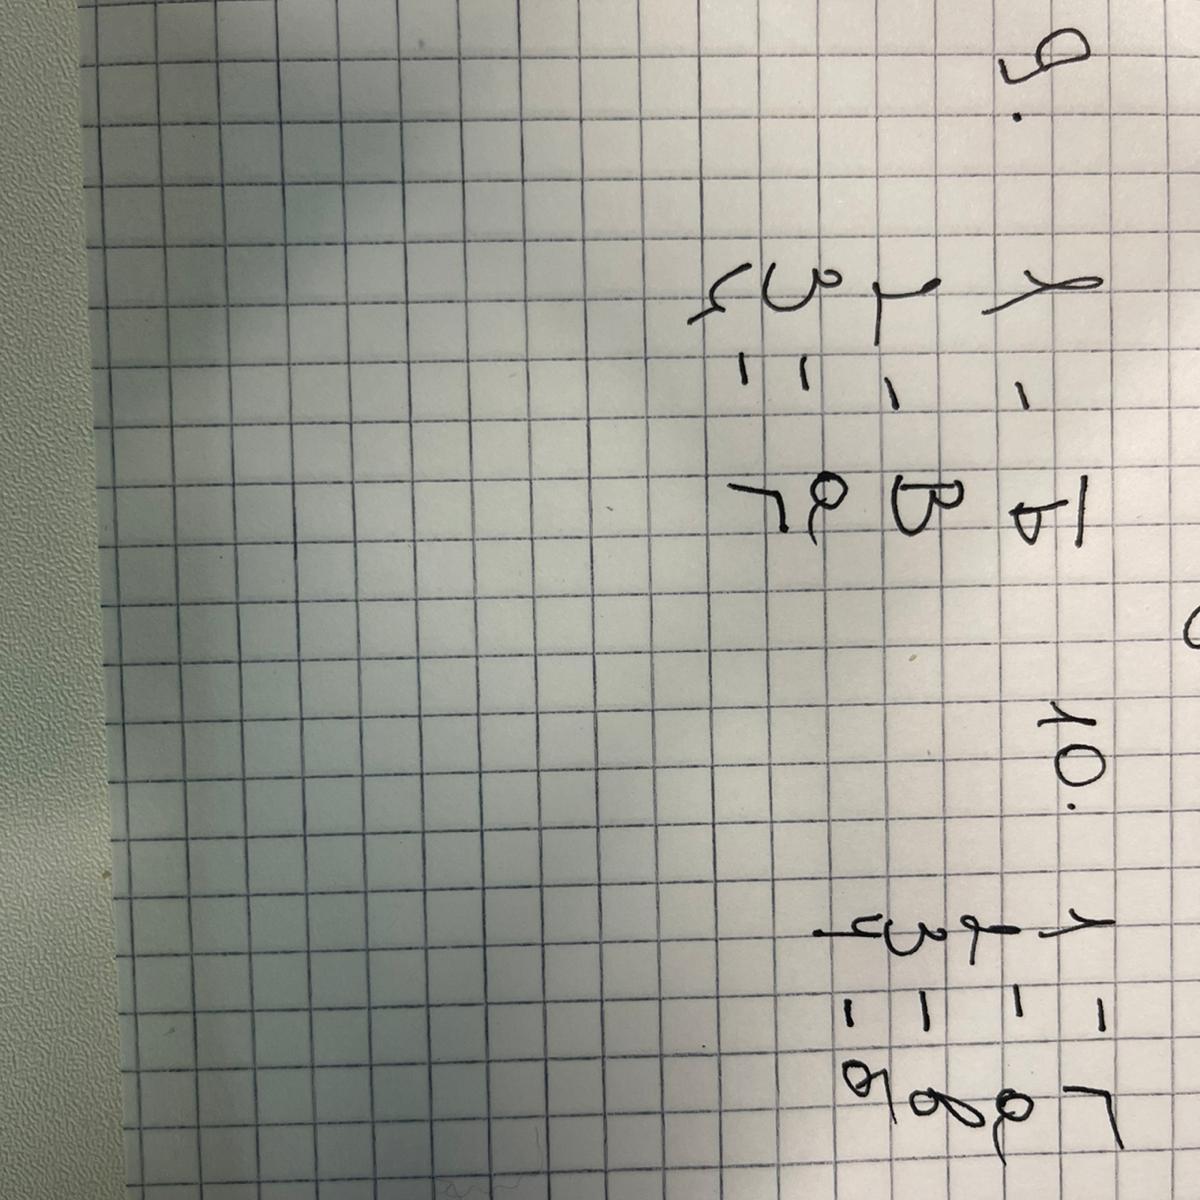 9. 1 - Б
2 - В
3 - а
4 - г
10. 1 - Г
2 - а
3 - в
4 - б